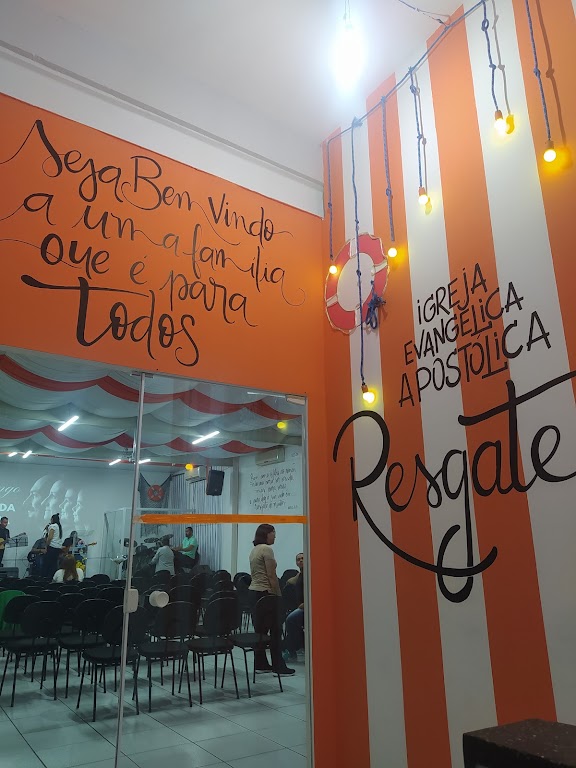 Seja Bem Vindo
a uma família
que é para
todos
iGREJA
EVANGÉLICA
APOSTOLiCA
Resgate
DA